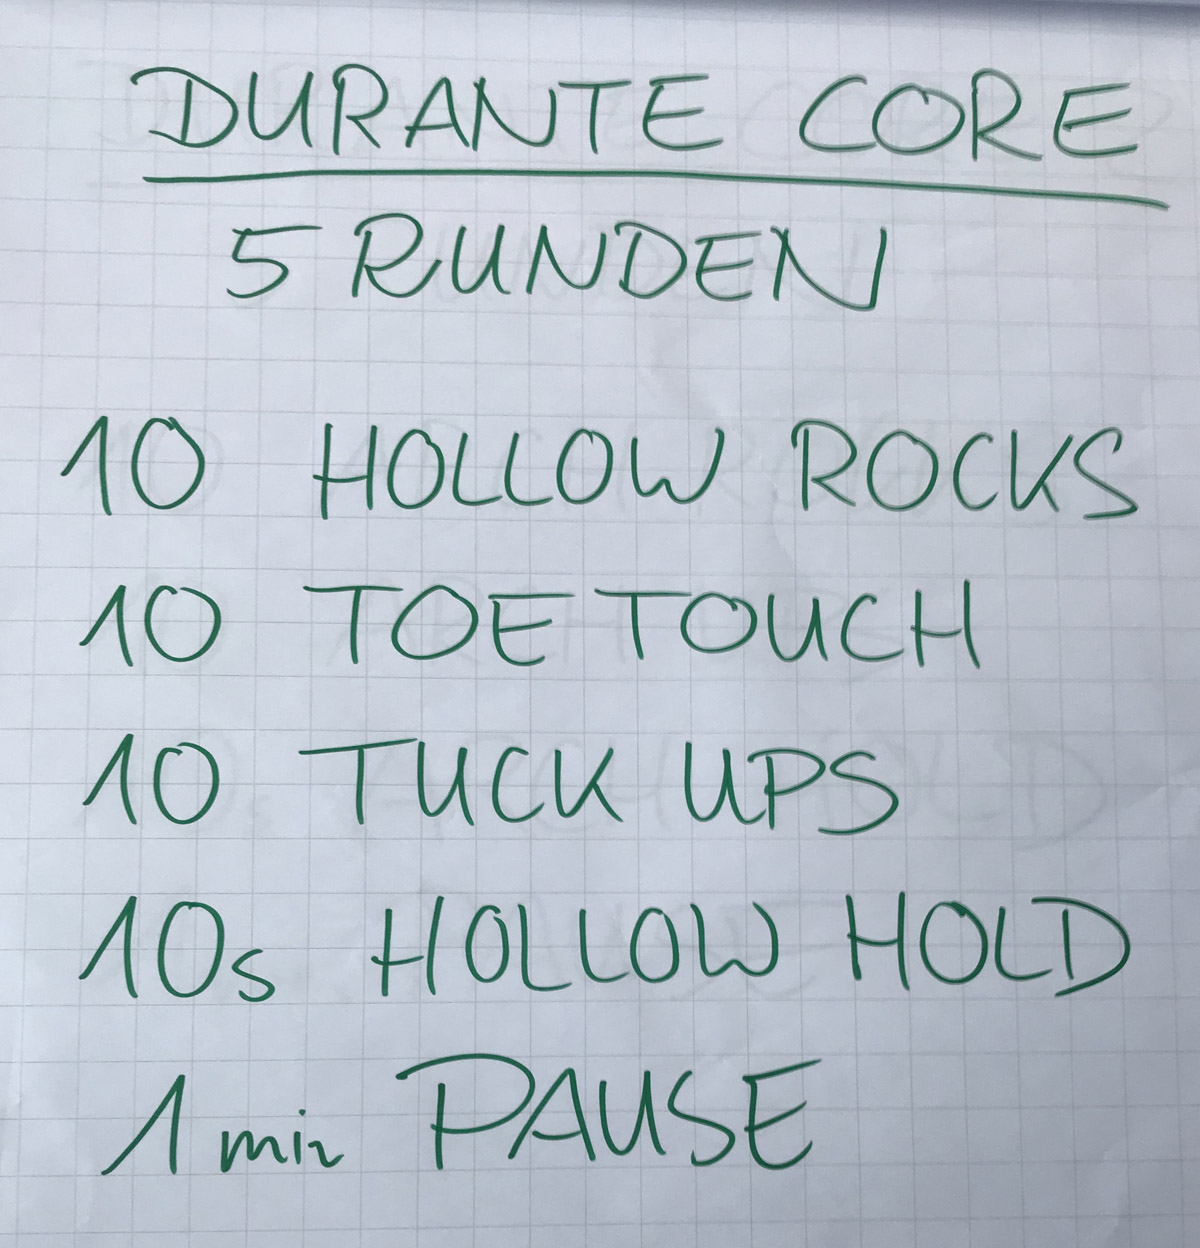 DURANTE CORE
5 RUNDEN
10 HOLLOW ROCKS
10 TOE TOUCH
10 TUCK UPS
10s HOLLOW HOLD
1 min PAUSE